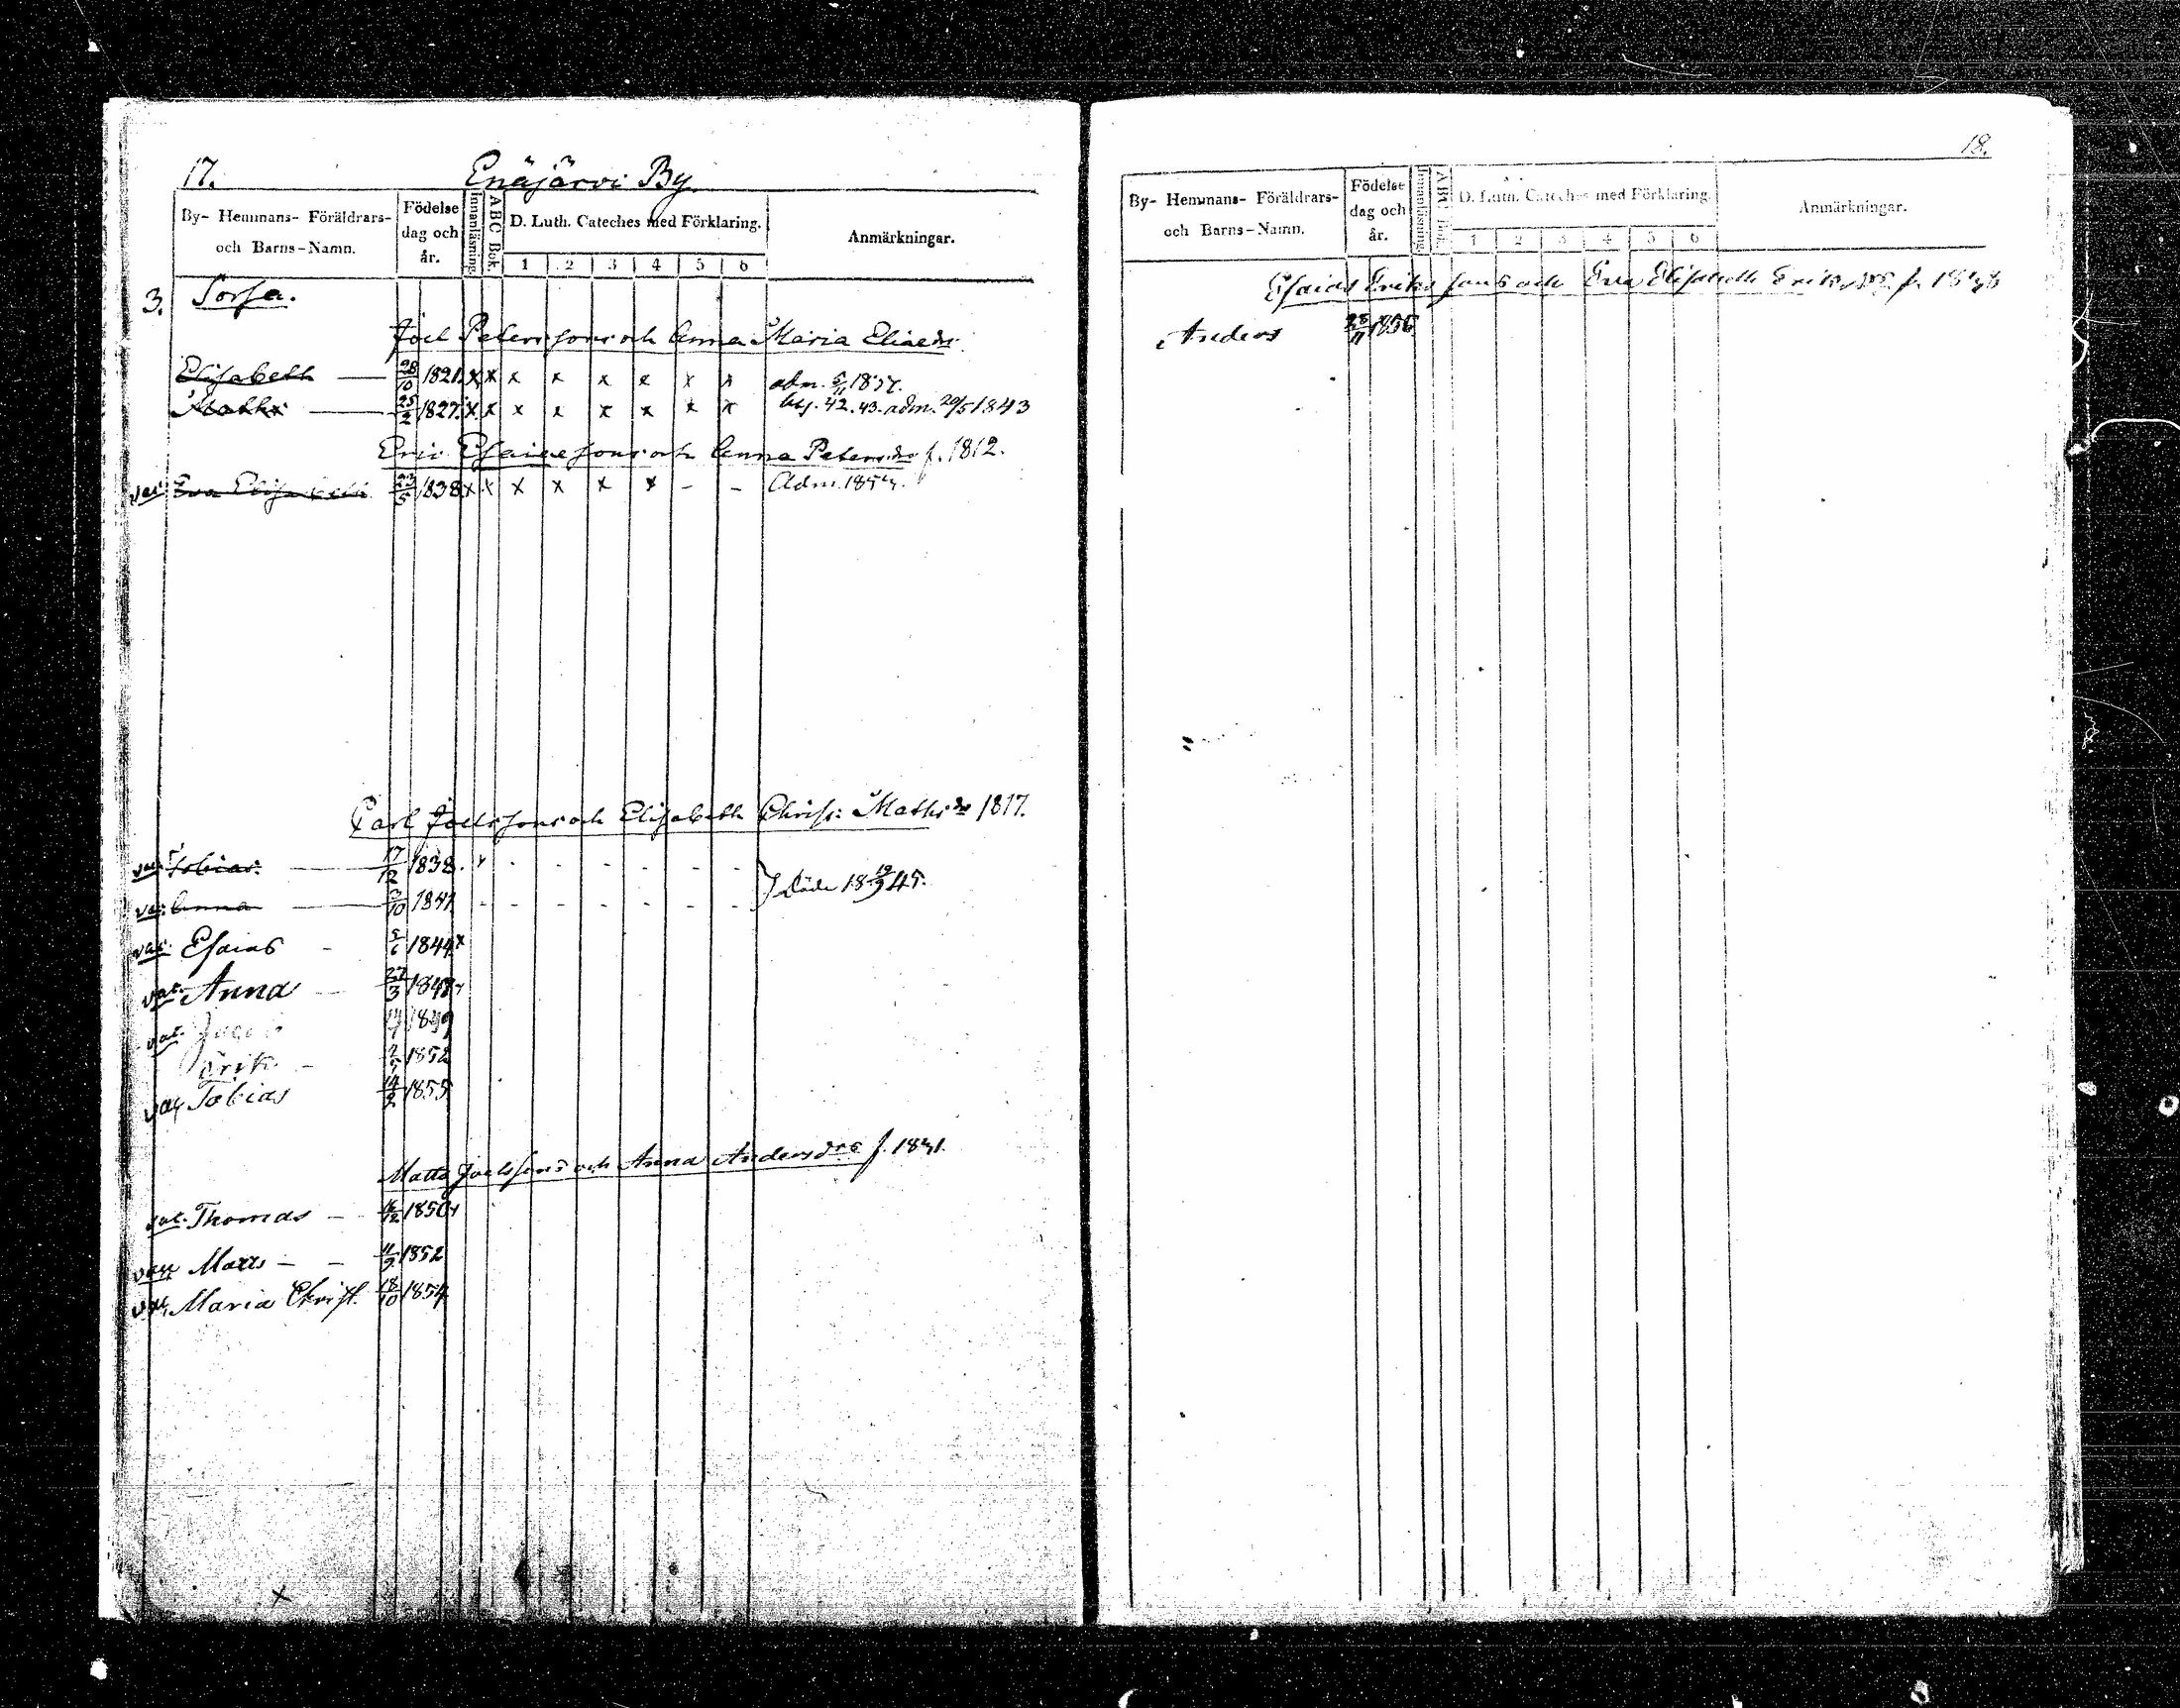 17.
Enäjärvi By
By- Hemmans- Föräldrars- och Barns-Namn.
Födelse dag och år.
Innanläsning.
ABC Bok.
D. Luth. Cateches med Förklaring.
1 2 3 4 5 6
Anmärkningar.
3. Sorsa.
Joel Peterssons och Anna Maria Eliaedr
Elisabeth — 28/10 1821. x x x x x x x x adm. 1837.
Matths — 25/2 1827. x x x x x x x x 42. 43. adm. 20/5 1843
Eric Esaiaesons och Anna Petersdr f. 1812.
vac: Eva Elisabeth 23/5 1838 x x x x x x - - Adm. 1854.
Carl Joelssons och Elisabeth Chris: Mathsdr 1817.
vac: Tobias: — 17/12 1838. x - - - - - -
vac: Anna — /10 1841 - - - - - - - } Döde 18 19/9 45.
vac: Esaias - 5/6 1844 x
vac. Anna — 27/3 1847
vac. Jacob 1849
Erik. - 1852
vac Tobias 14/2 1855
Matts Joelssons och Anna Andersdrs f. 1831.
vac. Thomas — /12 1850
vac Matts — — 11/9 1852
vac, Maria Christ. 18/10 1854
x
18.
By- Hemmans- Föräldrars- och Barns-Namn.
Födelse dag och år.
Innanläsning.
ABC Bok.
D. Luth. Cateches med Förklaring.
1 2 3 4 5 6
Anmärkningar.
Esaias Eriks sons och Eva Elisabeth Eriksdrs f. 1838
Anders 28/11 1856